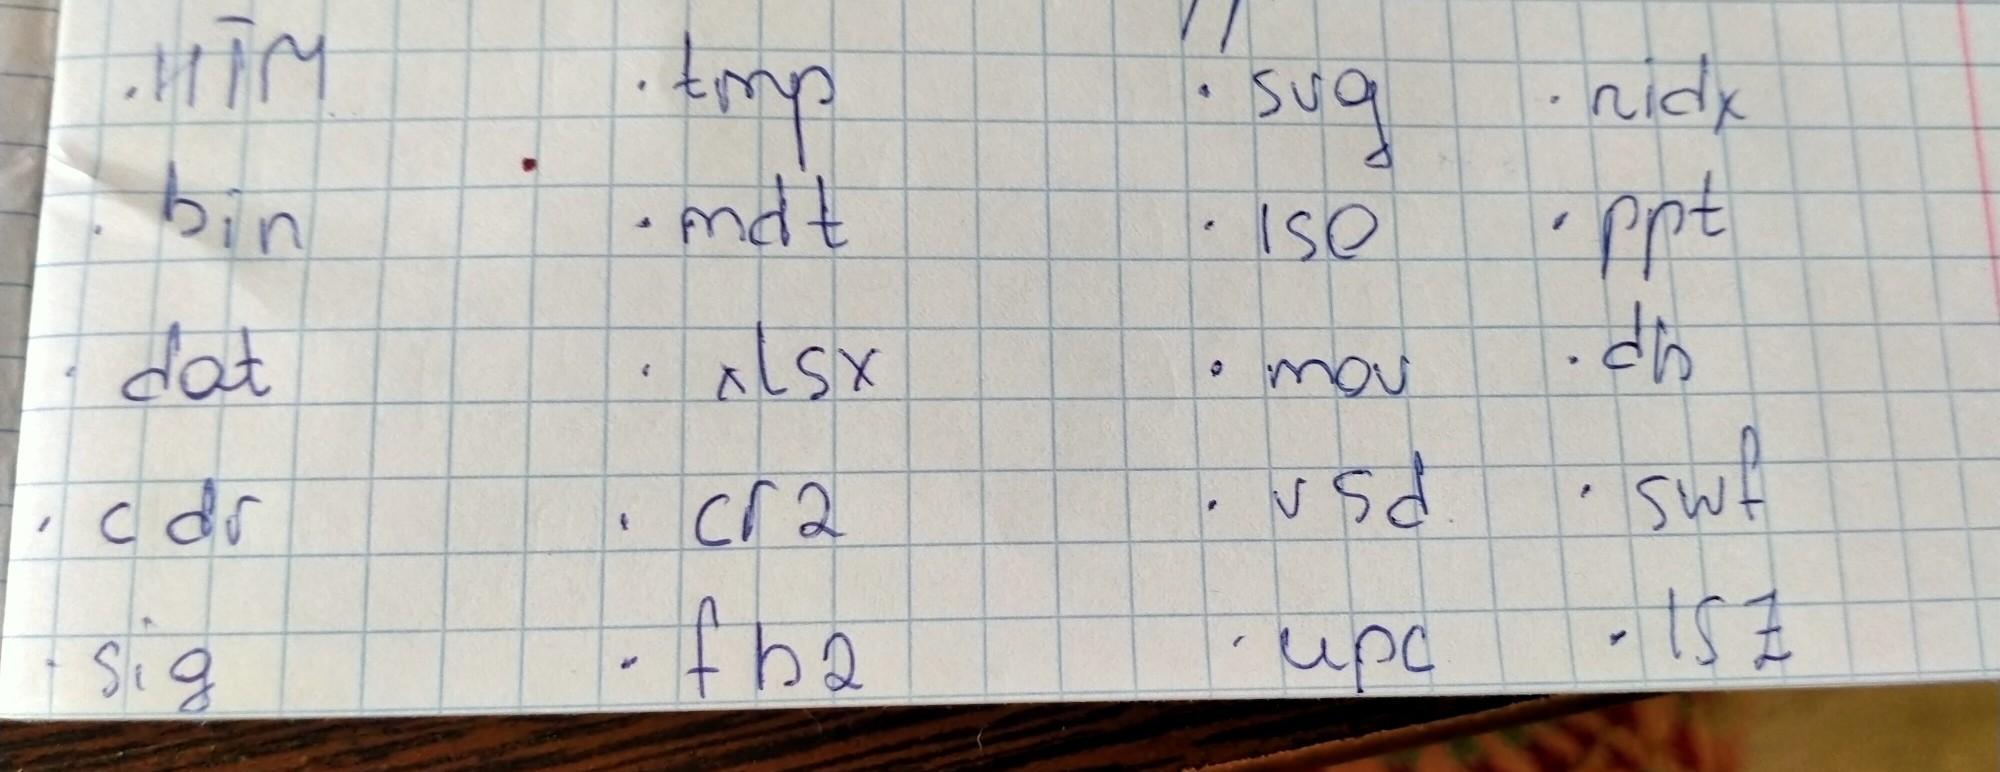 .HTM .tmp .svg .nidx
.bin .mdt .ISO .ppt
.dat .xlsx .mov .db
.cdr .cr2 .vsd .swf
.sig .fb2 .upc .ISZ